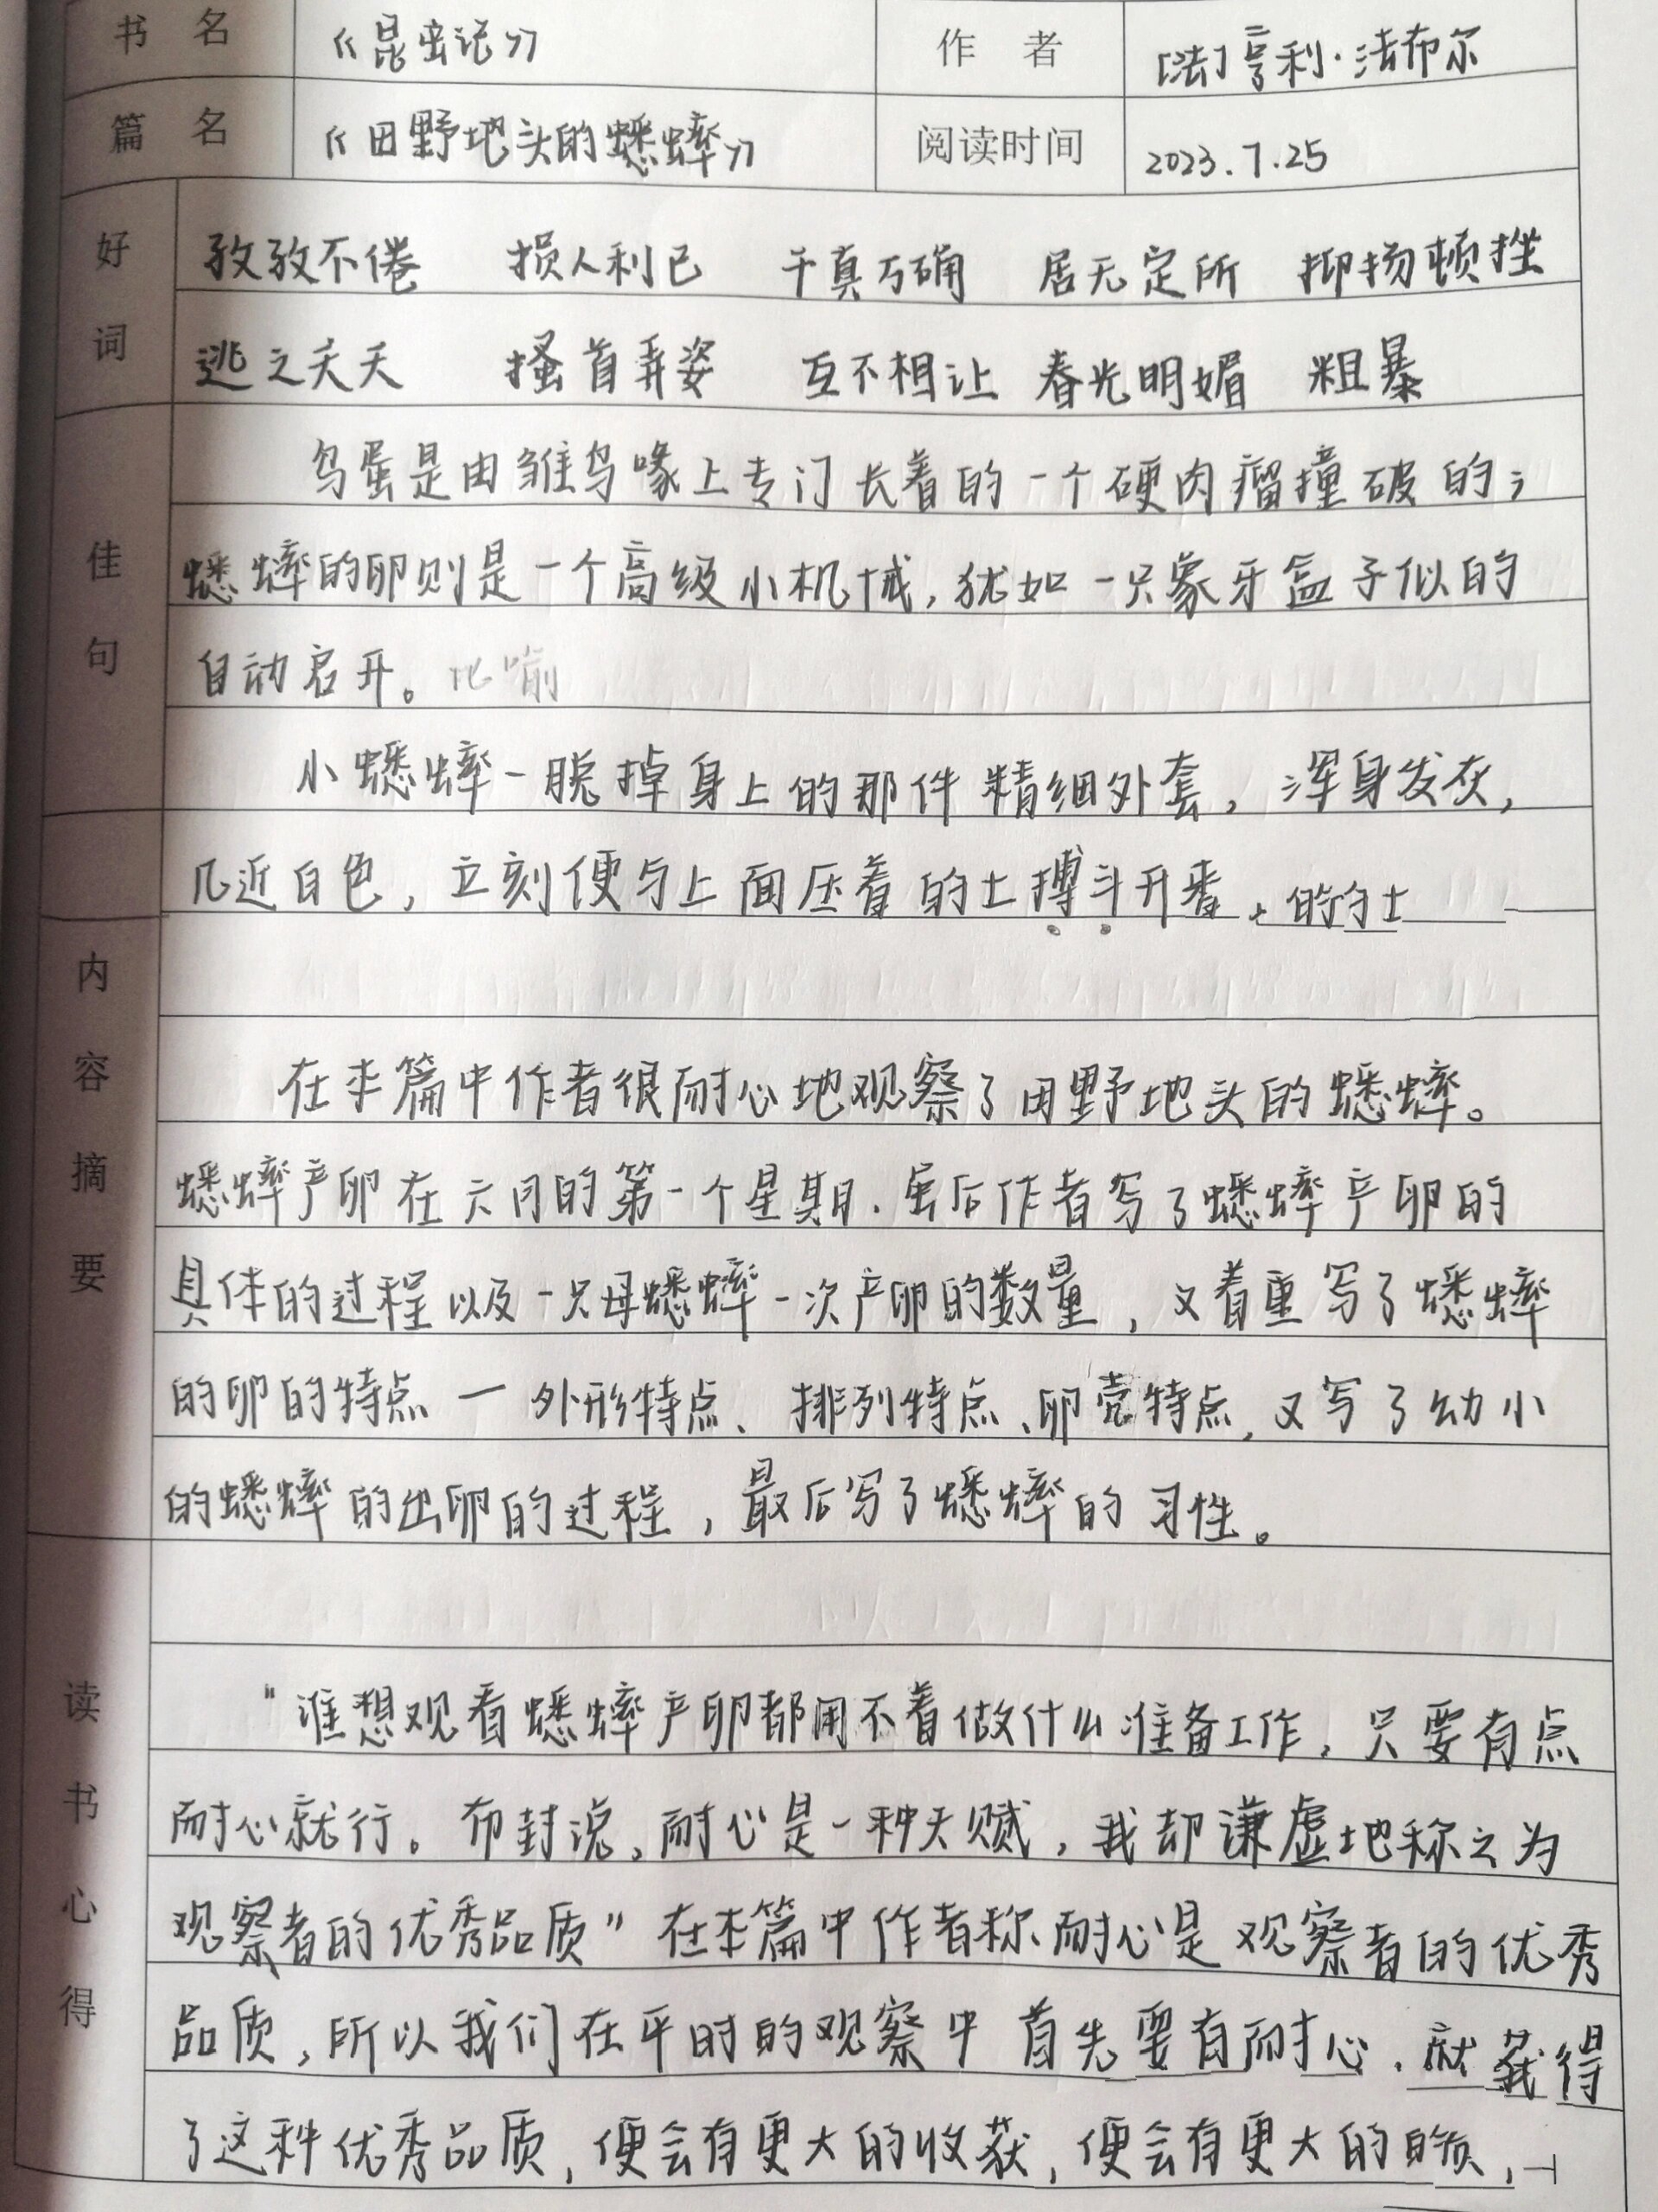 书 名 《昆虫记》 作 者 [法]亨利·法布尔
篇 名 《田野地头的蟋蟀》 阅读时间 2023.7.25
好词
孜孜不倦 损人利己 千真万确 居无定所 抑扬顿挫
逃之夭夭 搔首弄姿 互不相让 春光明媚 粗暴
佳句
鸟蛋是由雏鸟喙上专门长着的一个硬肉瘤撞破的；
蟋蟀的卵则是一个高级小机械，犹如一只象牙盒子似的
自动启开。比喻
小蟋蟀一脱掉身上的那件精细外套，浑身发灰，
几近白色，立刻便与上面压着的土搏斗开来
内容摘要
在本篇中作者很耐心地观察了田野地头的蟋蟀。
蟋蟀产卵在六月的第一个星期.虽后作者写了蟋蟀产卵的
具体的过程以及一只母蟋蟀一次产卵的数量，又着重写了蟋蟀
的卵的特点一外形特点、排列特点、卵壳特点，又写了幼小
的蟋蟀的出卵的过程，最后写了蟋蟀的习性。
读书心得
"谁想观看蟋蟀产卵都用不着做什么准备工作，只要有点
耐心就行。布封说，耐心是一种天赋，我却谦虚地称之为
观察者的优秀品质"在本篇中作者称耐心是观察者的优秀
品质，所以我们在平时的观察中首先要有耐心.就获得
了这种优秀品质，便会有更大的收获，便会有更大的